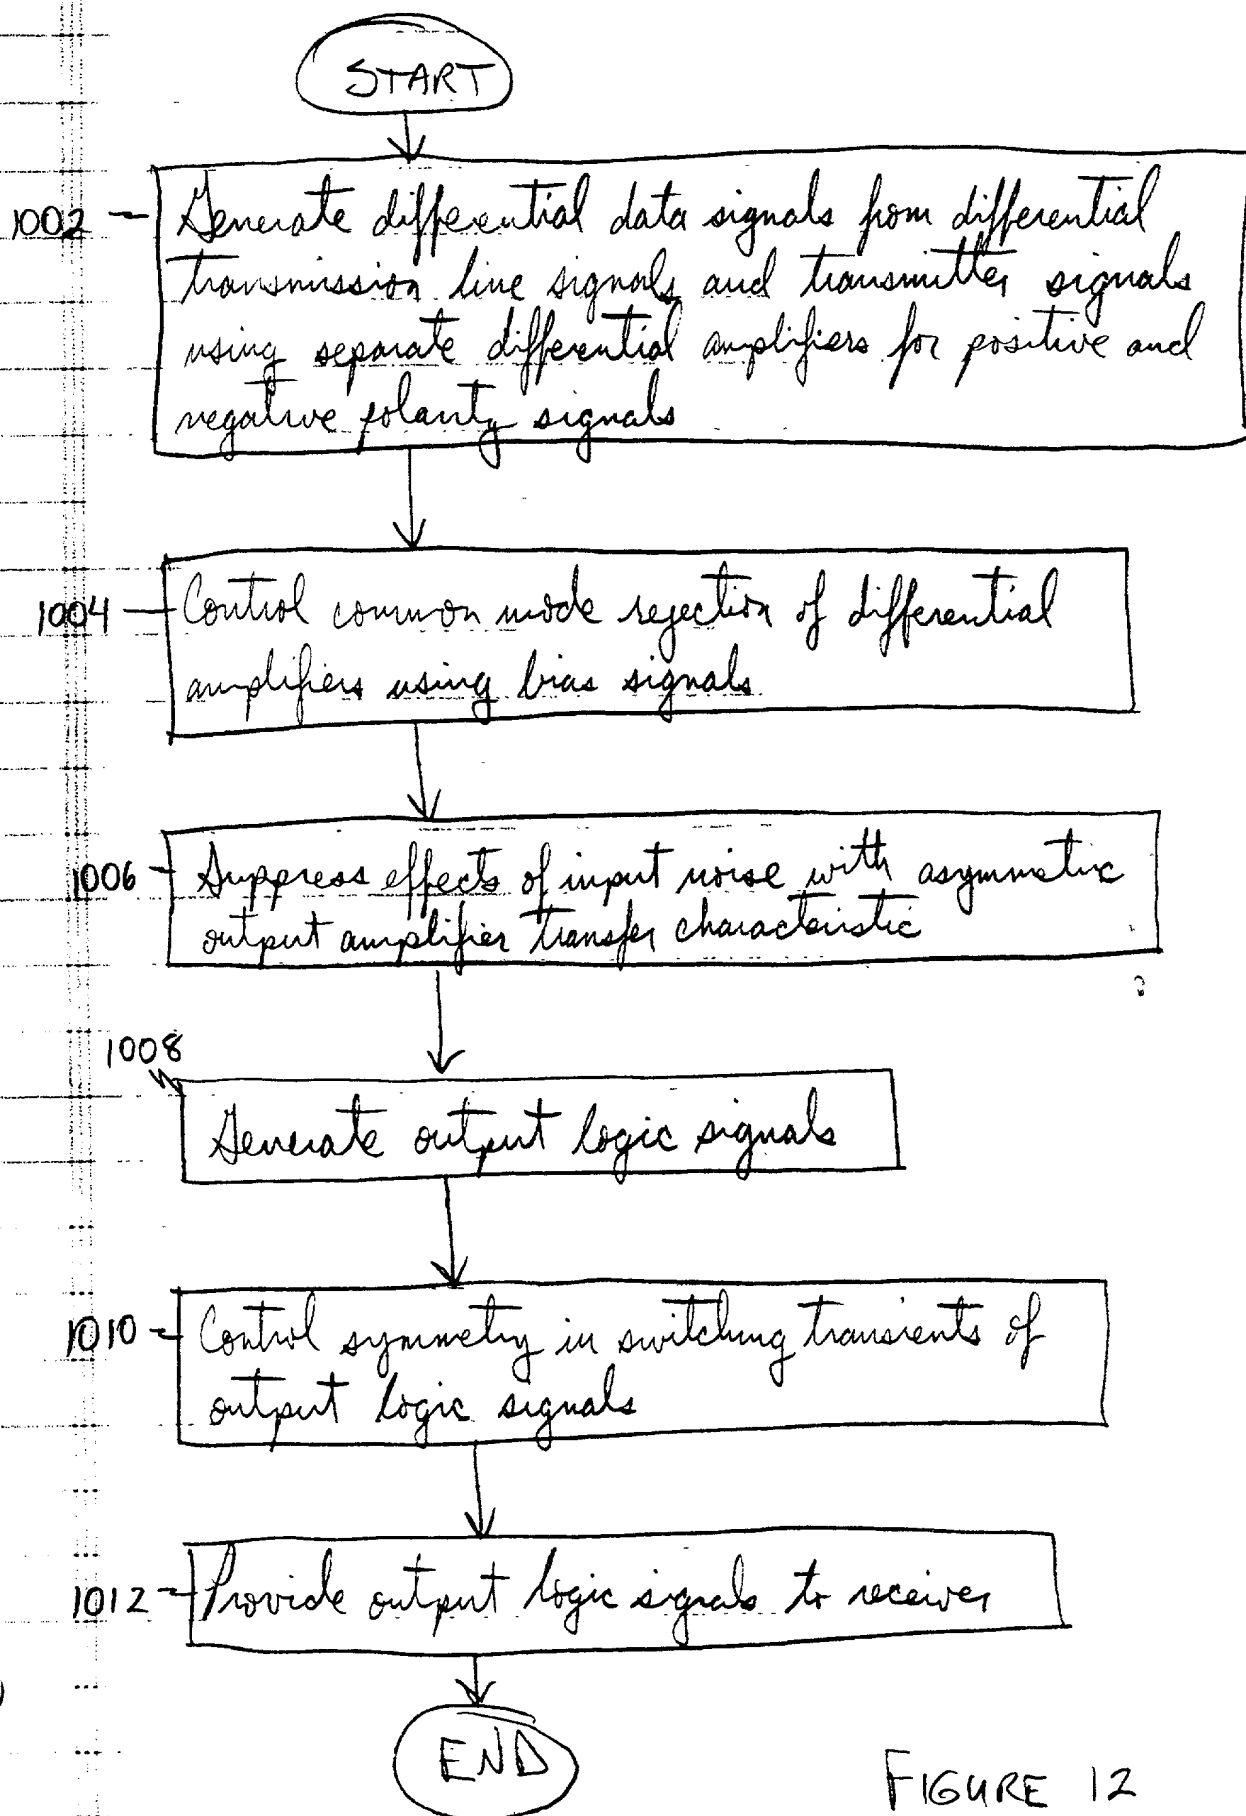 START
1002
Generate differential data signals from differential
transmission line signals and transmitter signals
using separate differential amplifiers for positive and
negative polarity signals
1004
Control common mode rejection of differential
amplifiers using bias signals
1006
Suppress effects of input noise with asymmetric
output amplifier transfer characteristic
1008
Generate output logic signals
1010
Control symmetry in switching transients of
output logic signals
1012
Provide output logic signals to receiver
END
FIGURE 12